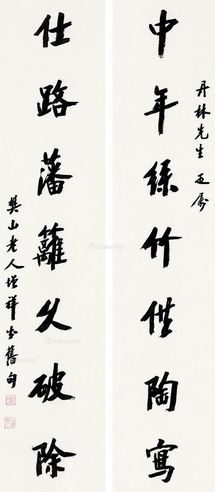 中年絲竹供陶寫
丹林先生正屬
仕路藩籬久破除
樊山老人增祥書舊句